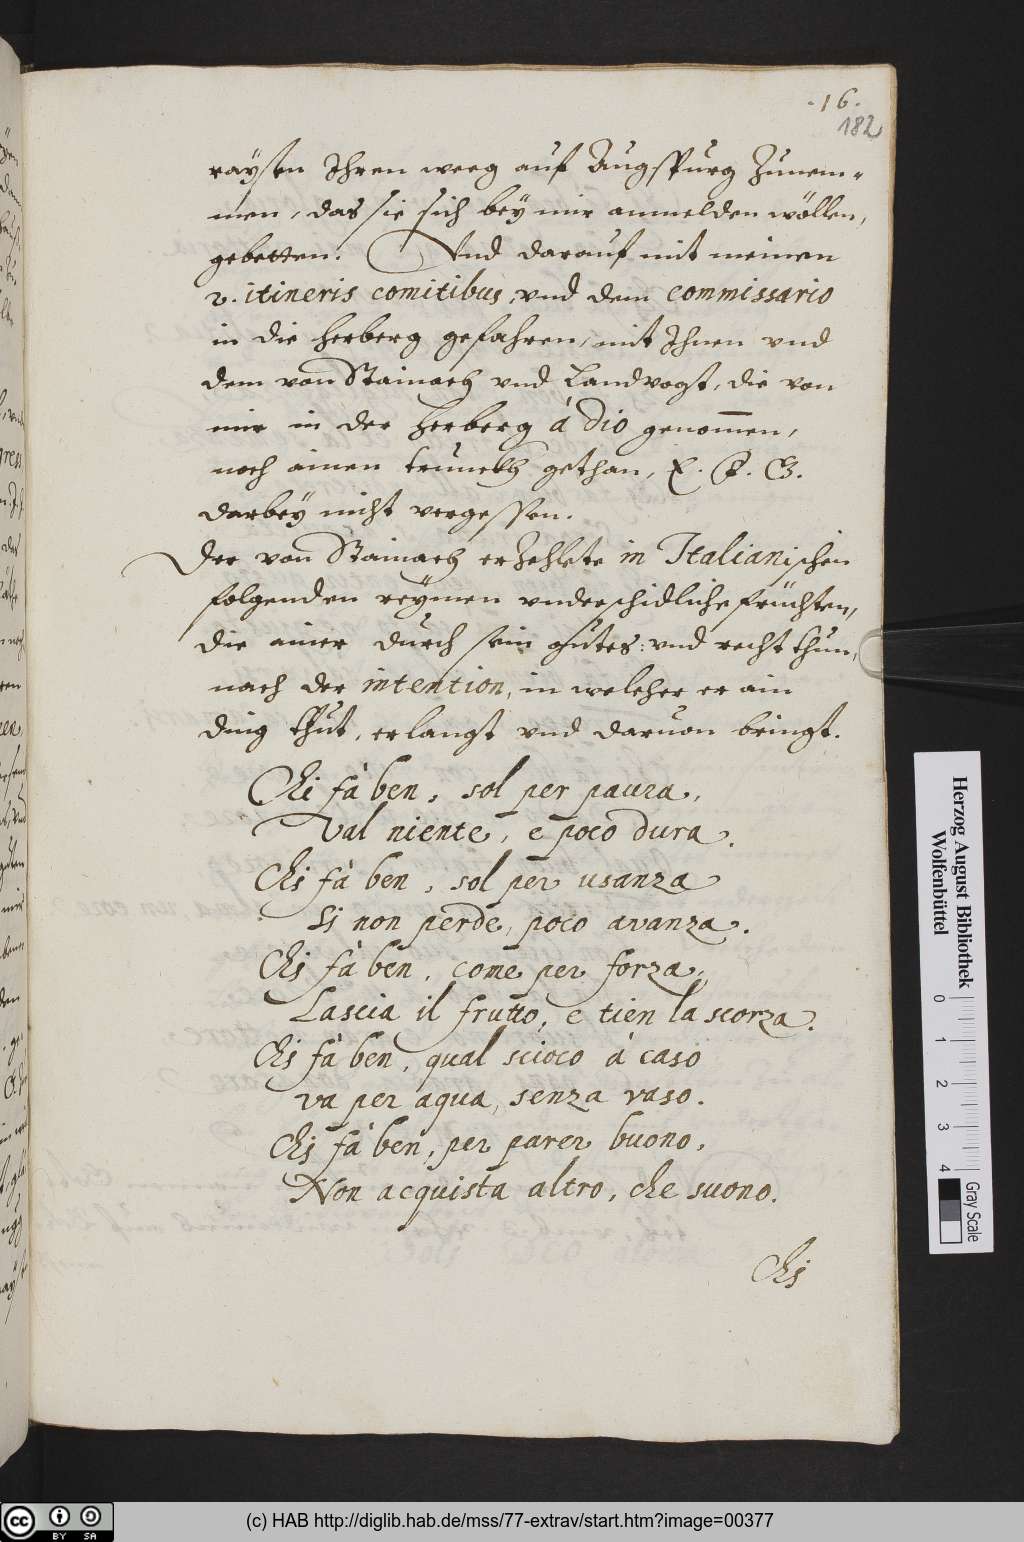 .16.
182
raysen Ihren weeg auf Augspurg zunem-
men, das sie sich bey mir anmelden wöllen,
gebetten. Vnd darauf mit meinen
2. itineris comitibus, vnd dem commissario
in die herberg gefahren, mit Ihnen vnd
dem von Stainach vnd Landvogt, die von
mir in der herberg à dio genommen,
noch ainen trunckh gethan, E. F. G.
darbey nicht vergessen.
Der von Stainach erzehlete in Italianischen
folgenden reymen vnderschidliche früchten,
die ainer durch sein gutes: vnd recht thun,
nach der intention, in welcher er ain
ding thut, erlangt vnd daruon bringt.
Chi fà ben, sol per paura,
Val niente, e poco dura.
Chi fà ben, sol per usanza
Si non perde, poco avanza.
Chi fà ben, come per forza,
Lascia il frutto, e tien la scorza.
Chi fà ben, qual scioco à caso
va per aqua, senza vaso.
Chi fà ben, per parer buono,
Non acquista altro, che suono.
Chi
Herzog August Bibliothek
Wolfenbüttel
0 1 2 3 4
Gray Scale
cc BY SA
(c) HAB http://diglib.hab.de/mss/77-extrav/start.htm?image=00377